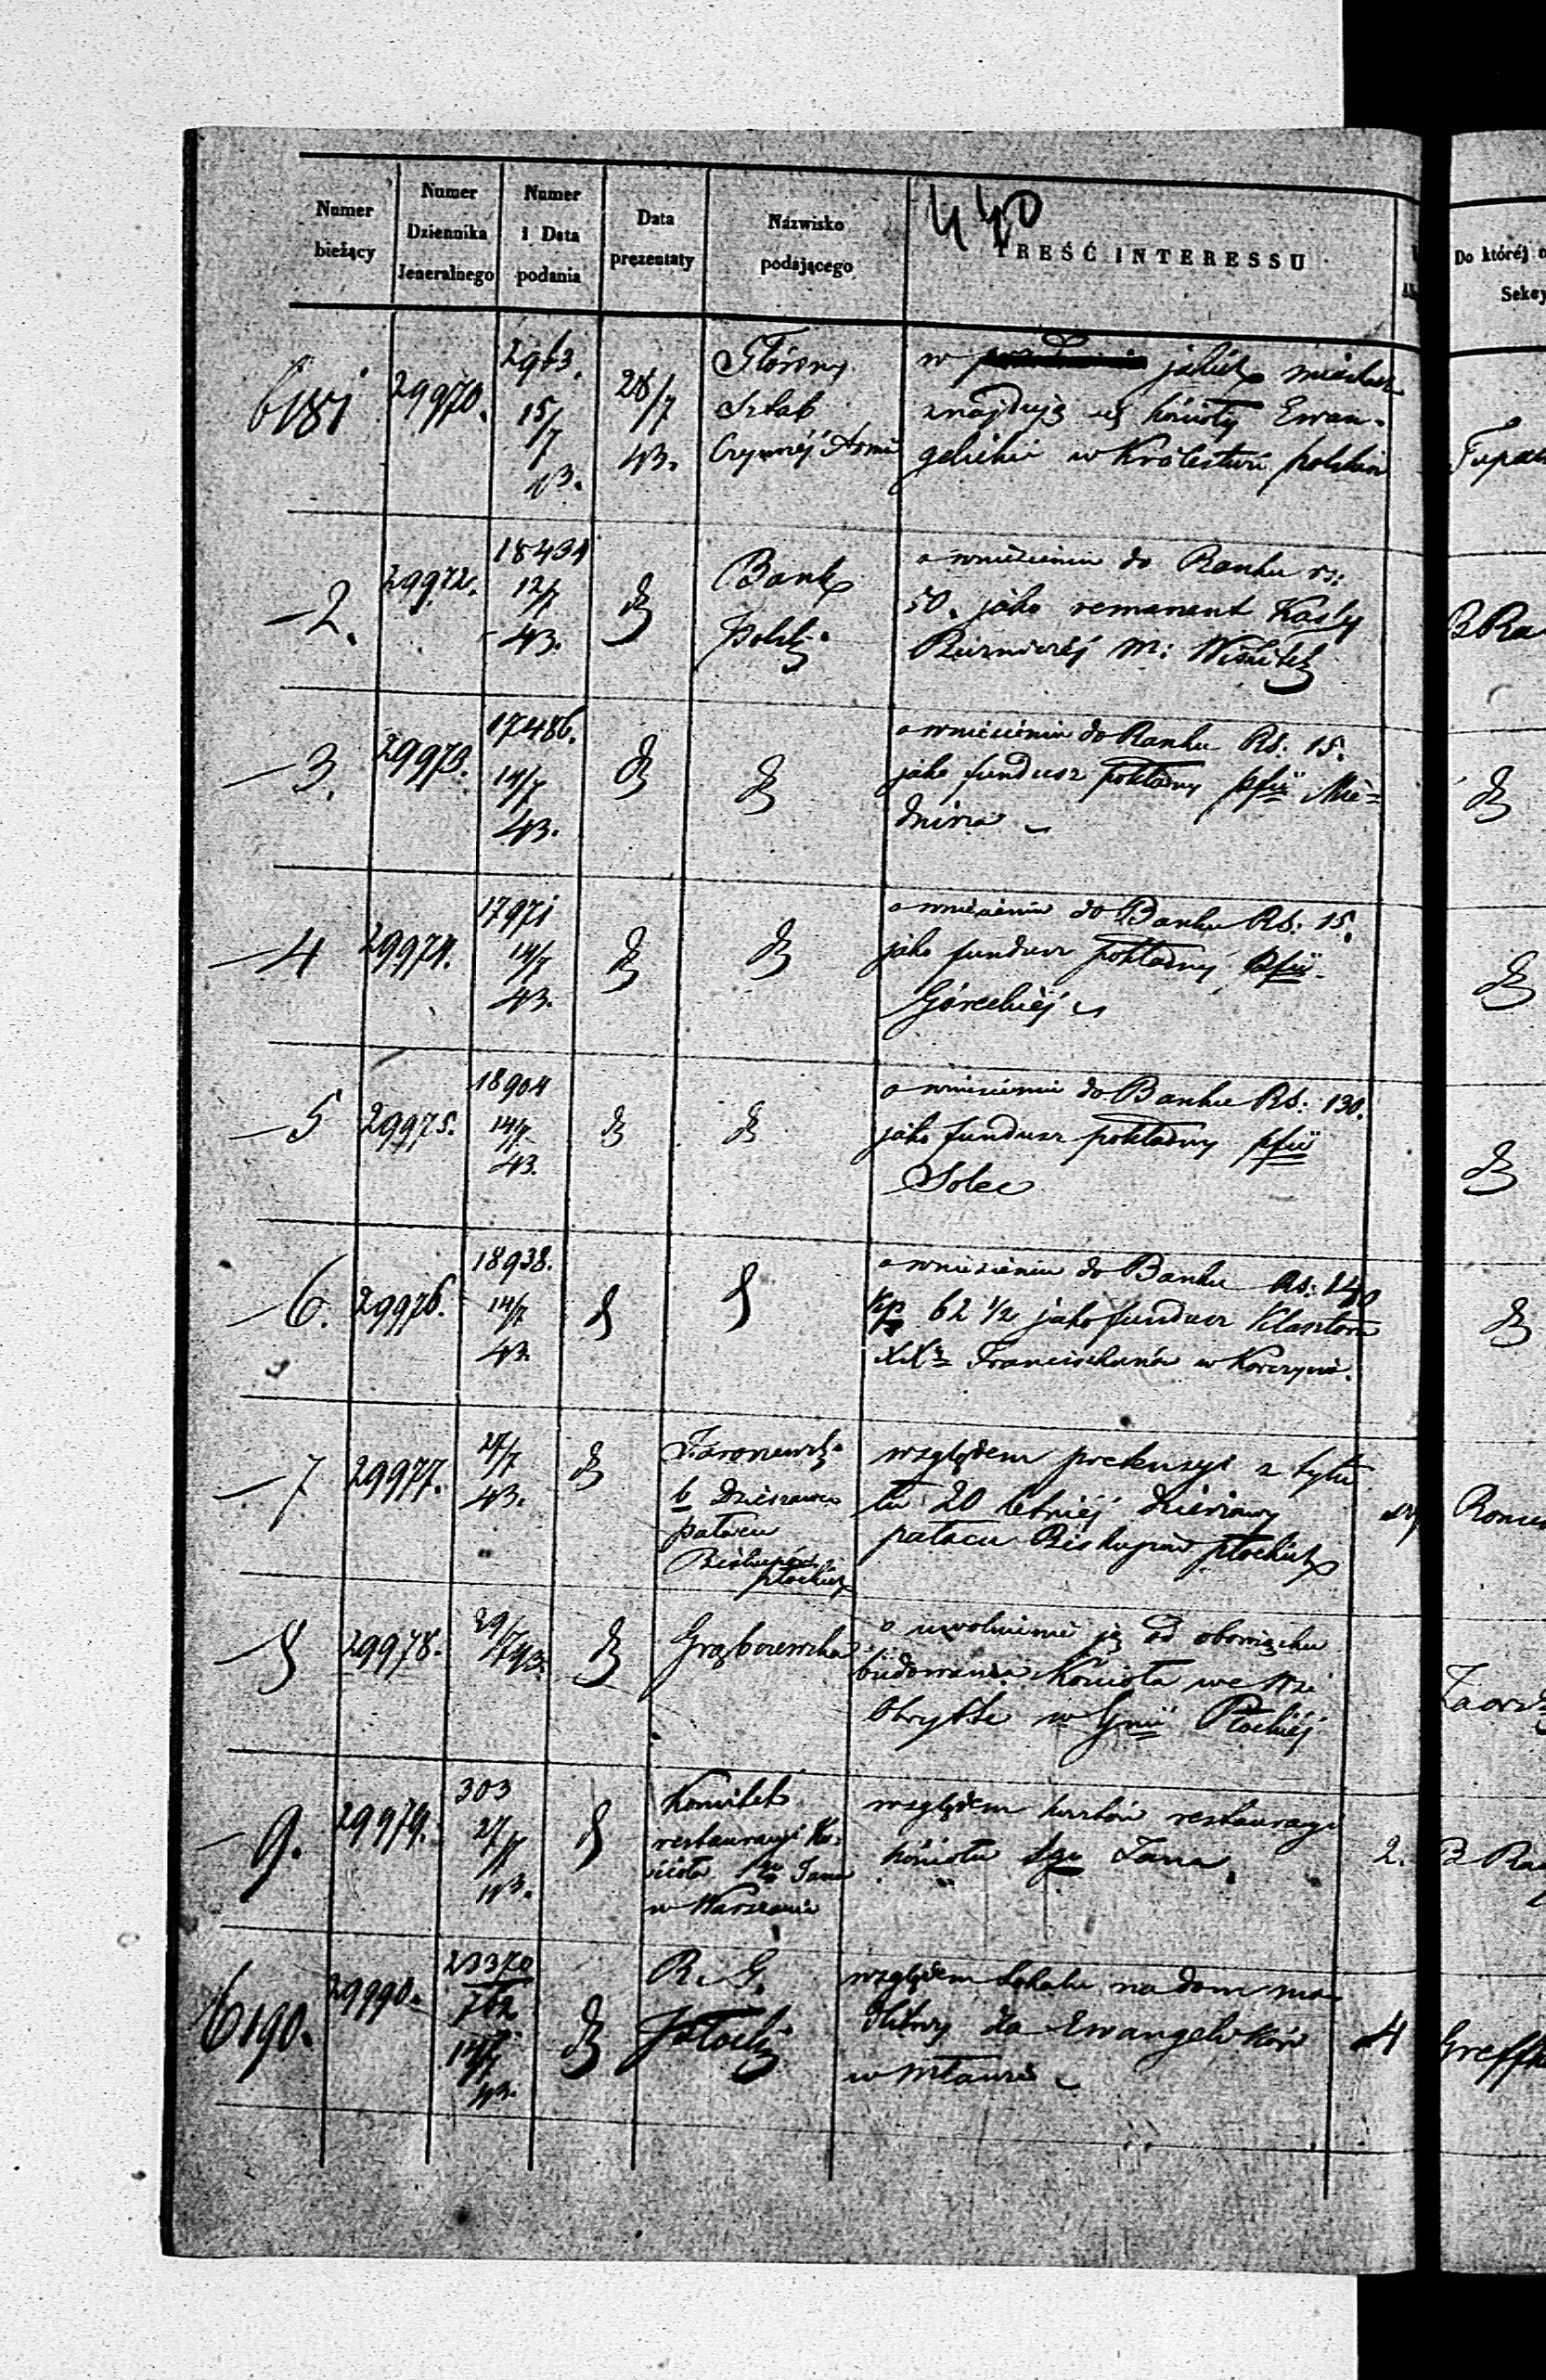 440
Numer bieżący
Numer Dziennika Jeneralnego
Numer i Data podania
Data prezentaty
Nazwisko podającego
TREŚĆ INTERESSU
Do któréj
Sekcy
6181
29970.
2963.
15/7
43.
28/7
43.
Główny
Sztab
Czynnéj Armii
w jakich miastach
znajdują się kościoły Ewan-
gelickie w Królestwie polskim
—2.
29972.
18431
12/7
43.
Bank
Polski
o wniesieniu do Banku rs:
50. jako remanent Kassy
m: Wiskitek
B Ra
—3.
29973.
17486.
14/7
43.
o wniesieniu do Banku Rs. 15.
jako fundusz pokładny pfii Mie=
dniewa
—4
29974.
17971
14/7
43.
o wniesieniu do Banku Rs: 15.
jako fundusz pokładny pfii
Góreckiéj
—5
29975.
18904
14/7
43.
o wniesieniu do Banku Rs: 130.
jako fundusz pokładny pfii
Solec
—6.
29976.
18938.
14/7
43.
o wniesieniu do Banku Rs: 140
Kp 62 1/2 jako fundusz Klasztoru
XX Franciszkanów w Korczynie.
—7
29977.
27/7
43.
b Dzierzawca
pałacu
Biskupów
płockich
względem pretensyi z tytu
łu 20 letniéj dzierżawy
pałacu Biskupów płockich
—8
29978.
29/7 43.
Grąbczewska
o uwolnienie ją od obowiązku
budowania Kościoła we Wsi
Obrytte w Gnii Płockiéj
—9.
29979.
303
27/7
43.
Komitet
restauracyi Ko-
ścioła Sgo Jana
w Warszawie
względem kosztów restauracyi
kościoła Sgo Jana
2.
B Ra
6190.
29990.
23370
762
14/7
43.
R. G.
Płocki
względem lokalu na dom mo-
dlitwy dla Ewangelików
w Mławie
4
Greff